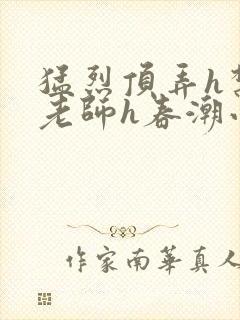 猛烈頂弄h
老師h春潮
作家南華真人